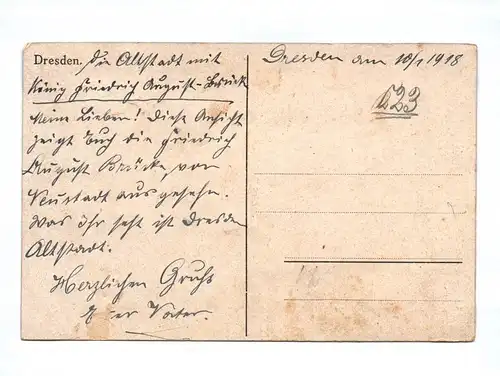 Dresden. Die Altstadt mit
König Friedrich August-Brück
Meine Lieben! Diese Ansicht
zeigt Euch die Friedrich
August Brücke, von
Neustadt aus gesehen.
Was Ihr seht ist Dresden
Altstadt.
Herzlichen Gruß
Euer Vater.
Dresden am 10/1 1918
623